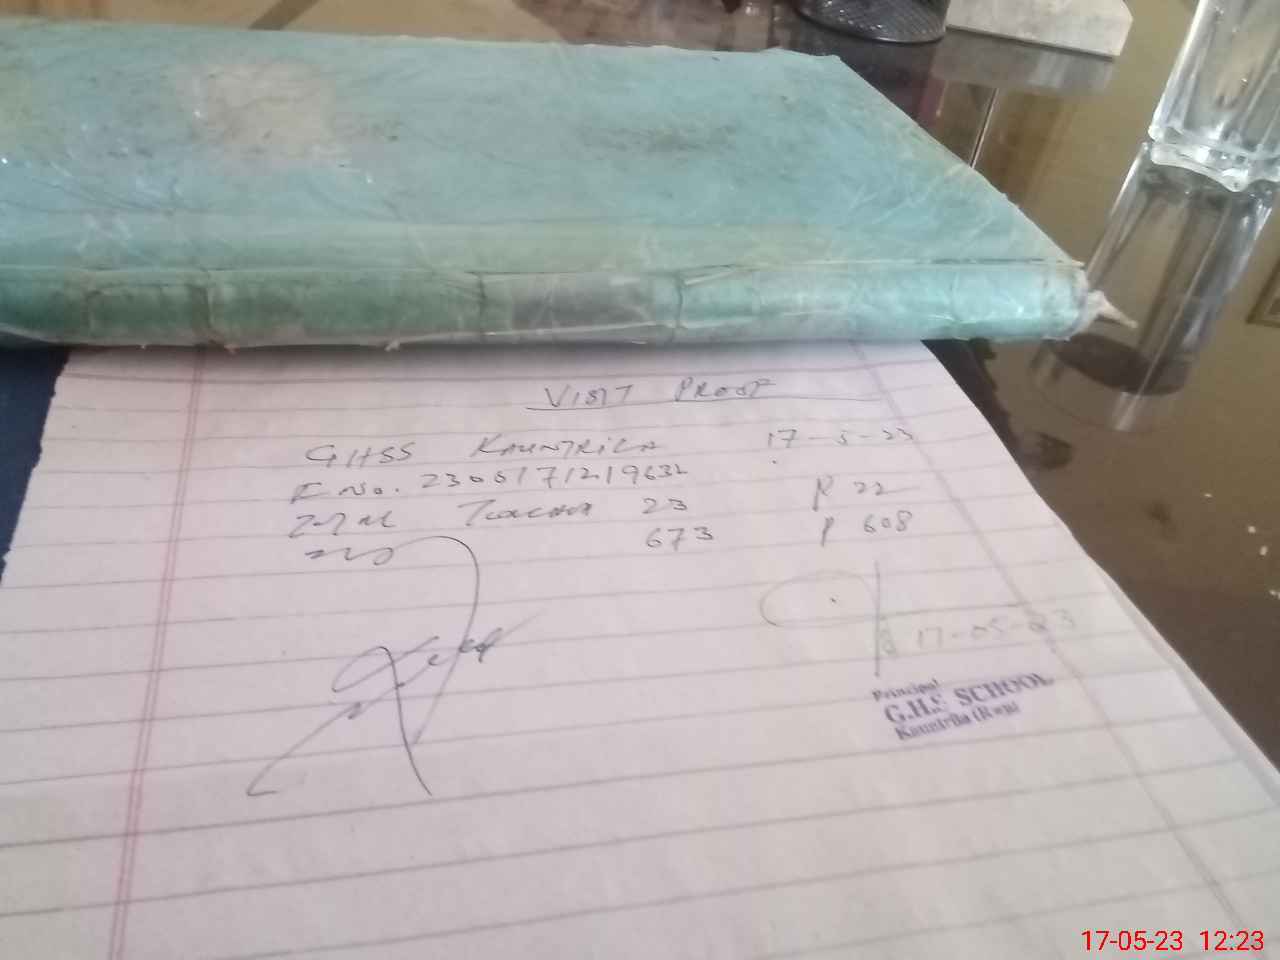 VISIT PROOF
GHSS KAUNTRILA 17-5-23
F No. 2305171219632
Total Teacher 23 P 22
673 P 608
17-05-23
Principal
G.H.S SCHOOL
Kauntrila (Raj)
17-05-23 12:23